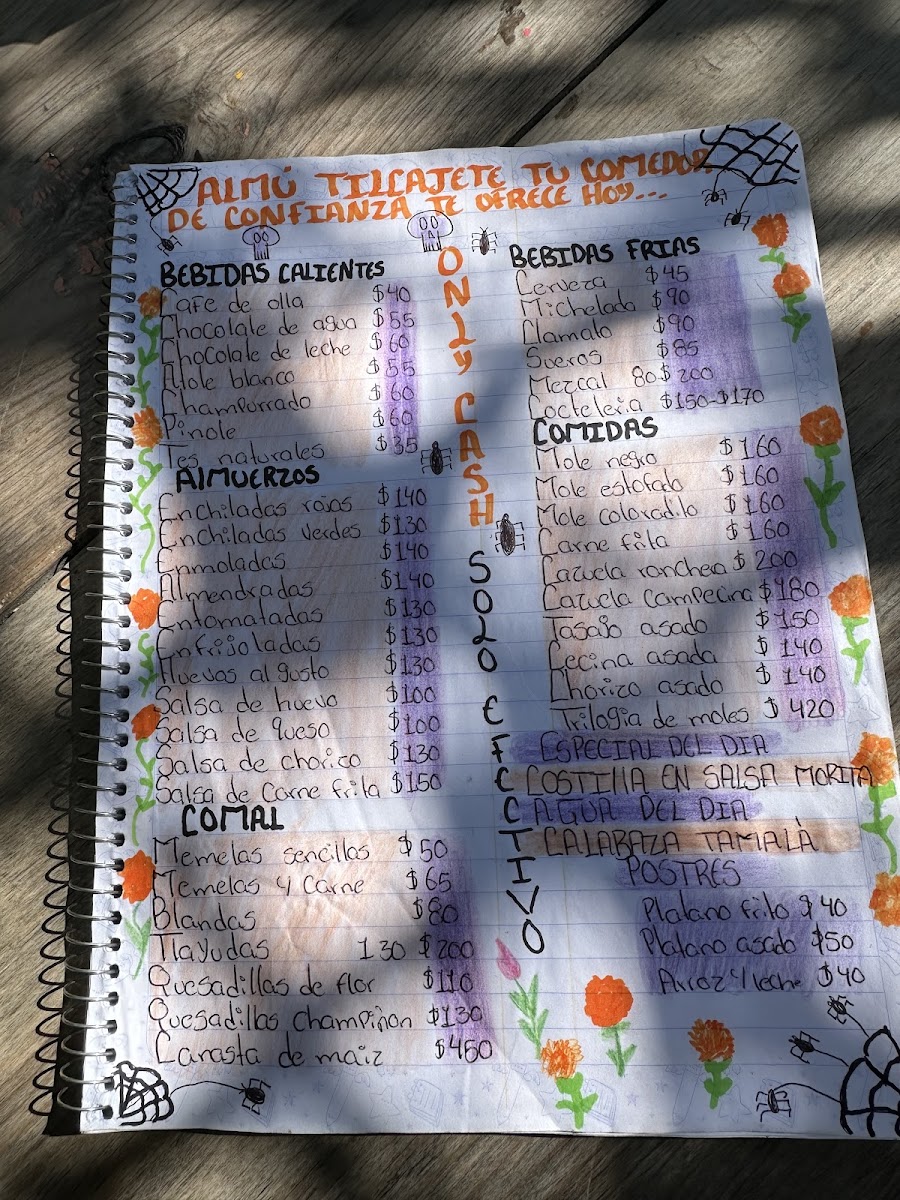 ALMÚ TILCAJETE TU COMEDOR
DE CONFIANZA TE OFRECE HOY...
BEBIDAS CALIENTES
Cafe de olla $40
Chocolate de agua $55
Chocolate de leche $60
Atole blanco $55
Champurrado $60
Pinole $60
Tes naturales $35
ALMUERZOS
Enchiladas rojas $140
Enchiladas verdes $130
Enmoladas $140
Almendradas $140
Entomatadas $130
Enfrijoladas $130
Huevos al gusto $130
Salsa de huevo $100
Salsa de queso $100
Salsa de chorizo $130
Salsa de Carne frita $150
COMAL
Memelas sencillas $50
Memelas y Carne $65
Blandas $80
Tlayudas 130 $200
Quesadillas de flor $110
Quesadillas Champiñon $130
Canasta de maiz $450
ONLY CASH
SOLO EFECTIVO
BEBIDAS FRIAS
Cerveza $45
Michelada $90
Clamato $90
Sueros $85
Mezcal 80 $200
Cocteleria $150-$170
COMIDAS
Mole negro $160
Mole estofado $160
Mole coloradito $160
Carne frita $160
Cazuela ranchera $200
Cazuela Campecina $180
Tasajo asado $150
Cecina asada $140
Chorizo asado $140
Trilogia de moles $420
ESPECIAL DEL DIA
COSTILLA EN SALSA MORITA
AGUA DEL DIA
CALABAZA TAMALA
POSTRES
Platano frito $40
Platano asado $50
Arroz y leche $40